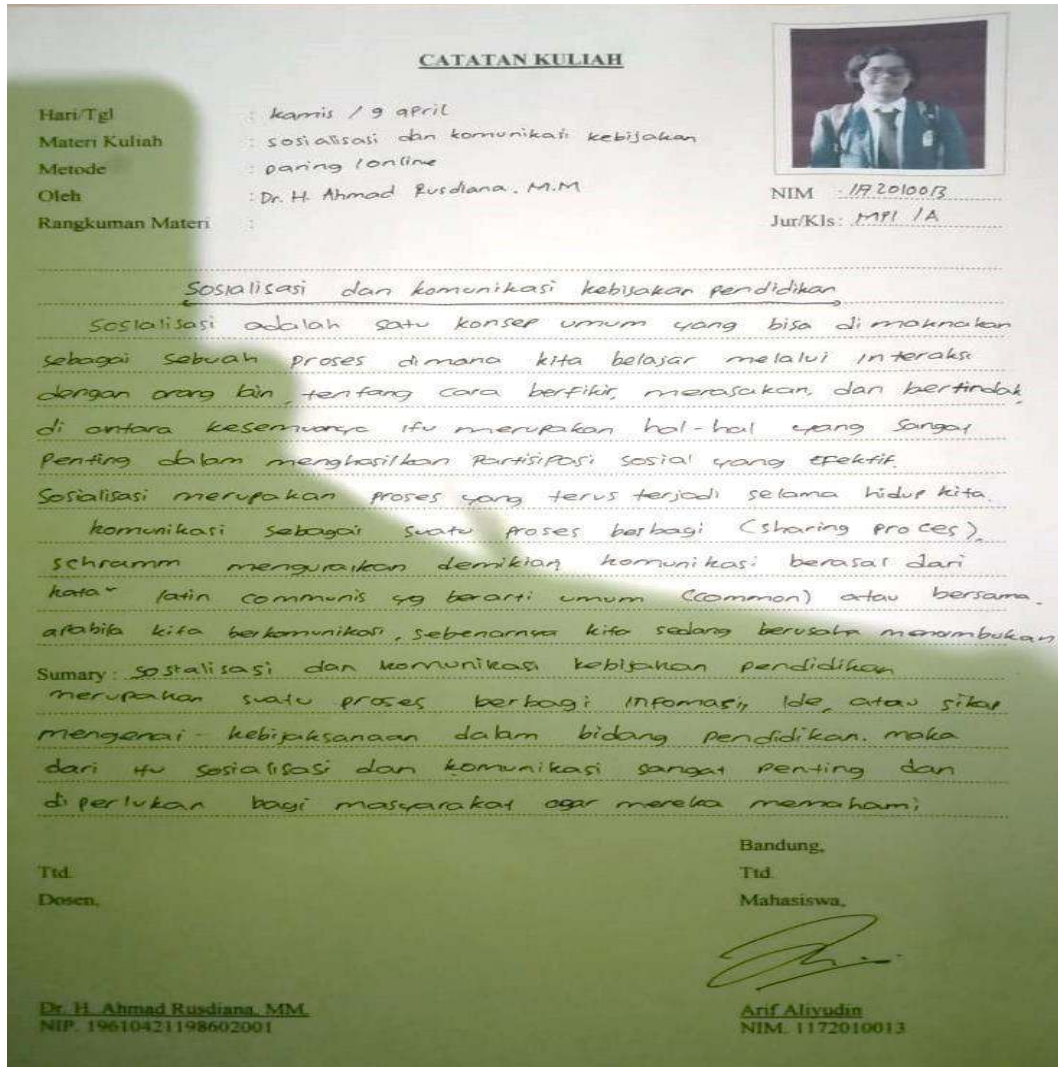 CATATAN KULIAH
Hari/Tgl : kamis / 9 april
Materi Kuliah : sosialisasi dan komunikasi kebijakan
Metode : Daring /online
Oleh : Dr. H. Ahmad Rusdiana. M.M
Rangkuman Materi :
NIM : 1172010013
Jur/Kls : MPI /A
Sosialisasi dan komunikasi kebijakan pendidikan
Sosialisasi adalah satu konsep umum yang bisa di maknakan
sebagai sebuah proses dimana kita belajar melalui interaksi
dengan orang lain, tentang cara berfikir, merasakan, dan bertindak
di antara kesemuanya itu merupakan hal-hal yang sangat
Penting dalam menghasilkan Partisipasi sosial yang Efektif.
Sosialisasi merupakan proses yang terus terjadi selama hidup kita.
komunikasi sebagai suatu proses berbagi (sharing proces).
schramm menguraikan demikian komunikasi berasal dari
kata" latin communis yg berarti umum (common) atau bersama.
apabila kita berkomunikasi, sebenarnya kita sedang berusaha menumbukan
Sumary : Sosialisasi dan komunikasi kebijakan pendidikan
merupakan suatu proses berbagi infomasi, Ide, atau sikap
mengenai - kebijaksanaan dalam bidang pendidikan. maka
dari itu sosialisasi dan komunikasi sangat penting dan
di perlukan bagi masyarakat agar mereka memahami
Bandung,
Ttd. Ttd.
Dosen, Mahasiswa,
Dr. H. Ahmad Rusdiana, MM. Arif Aliyudin
NIP. 19610421198602001 NIM. 1172010013